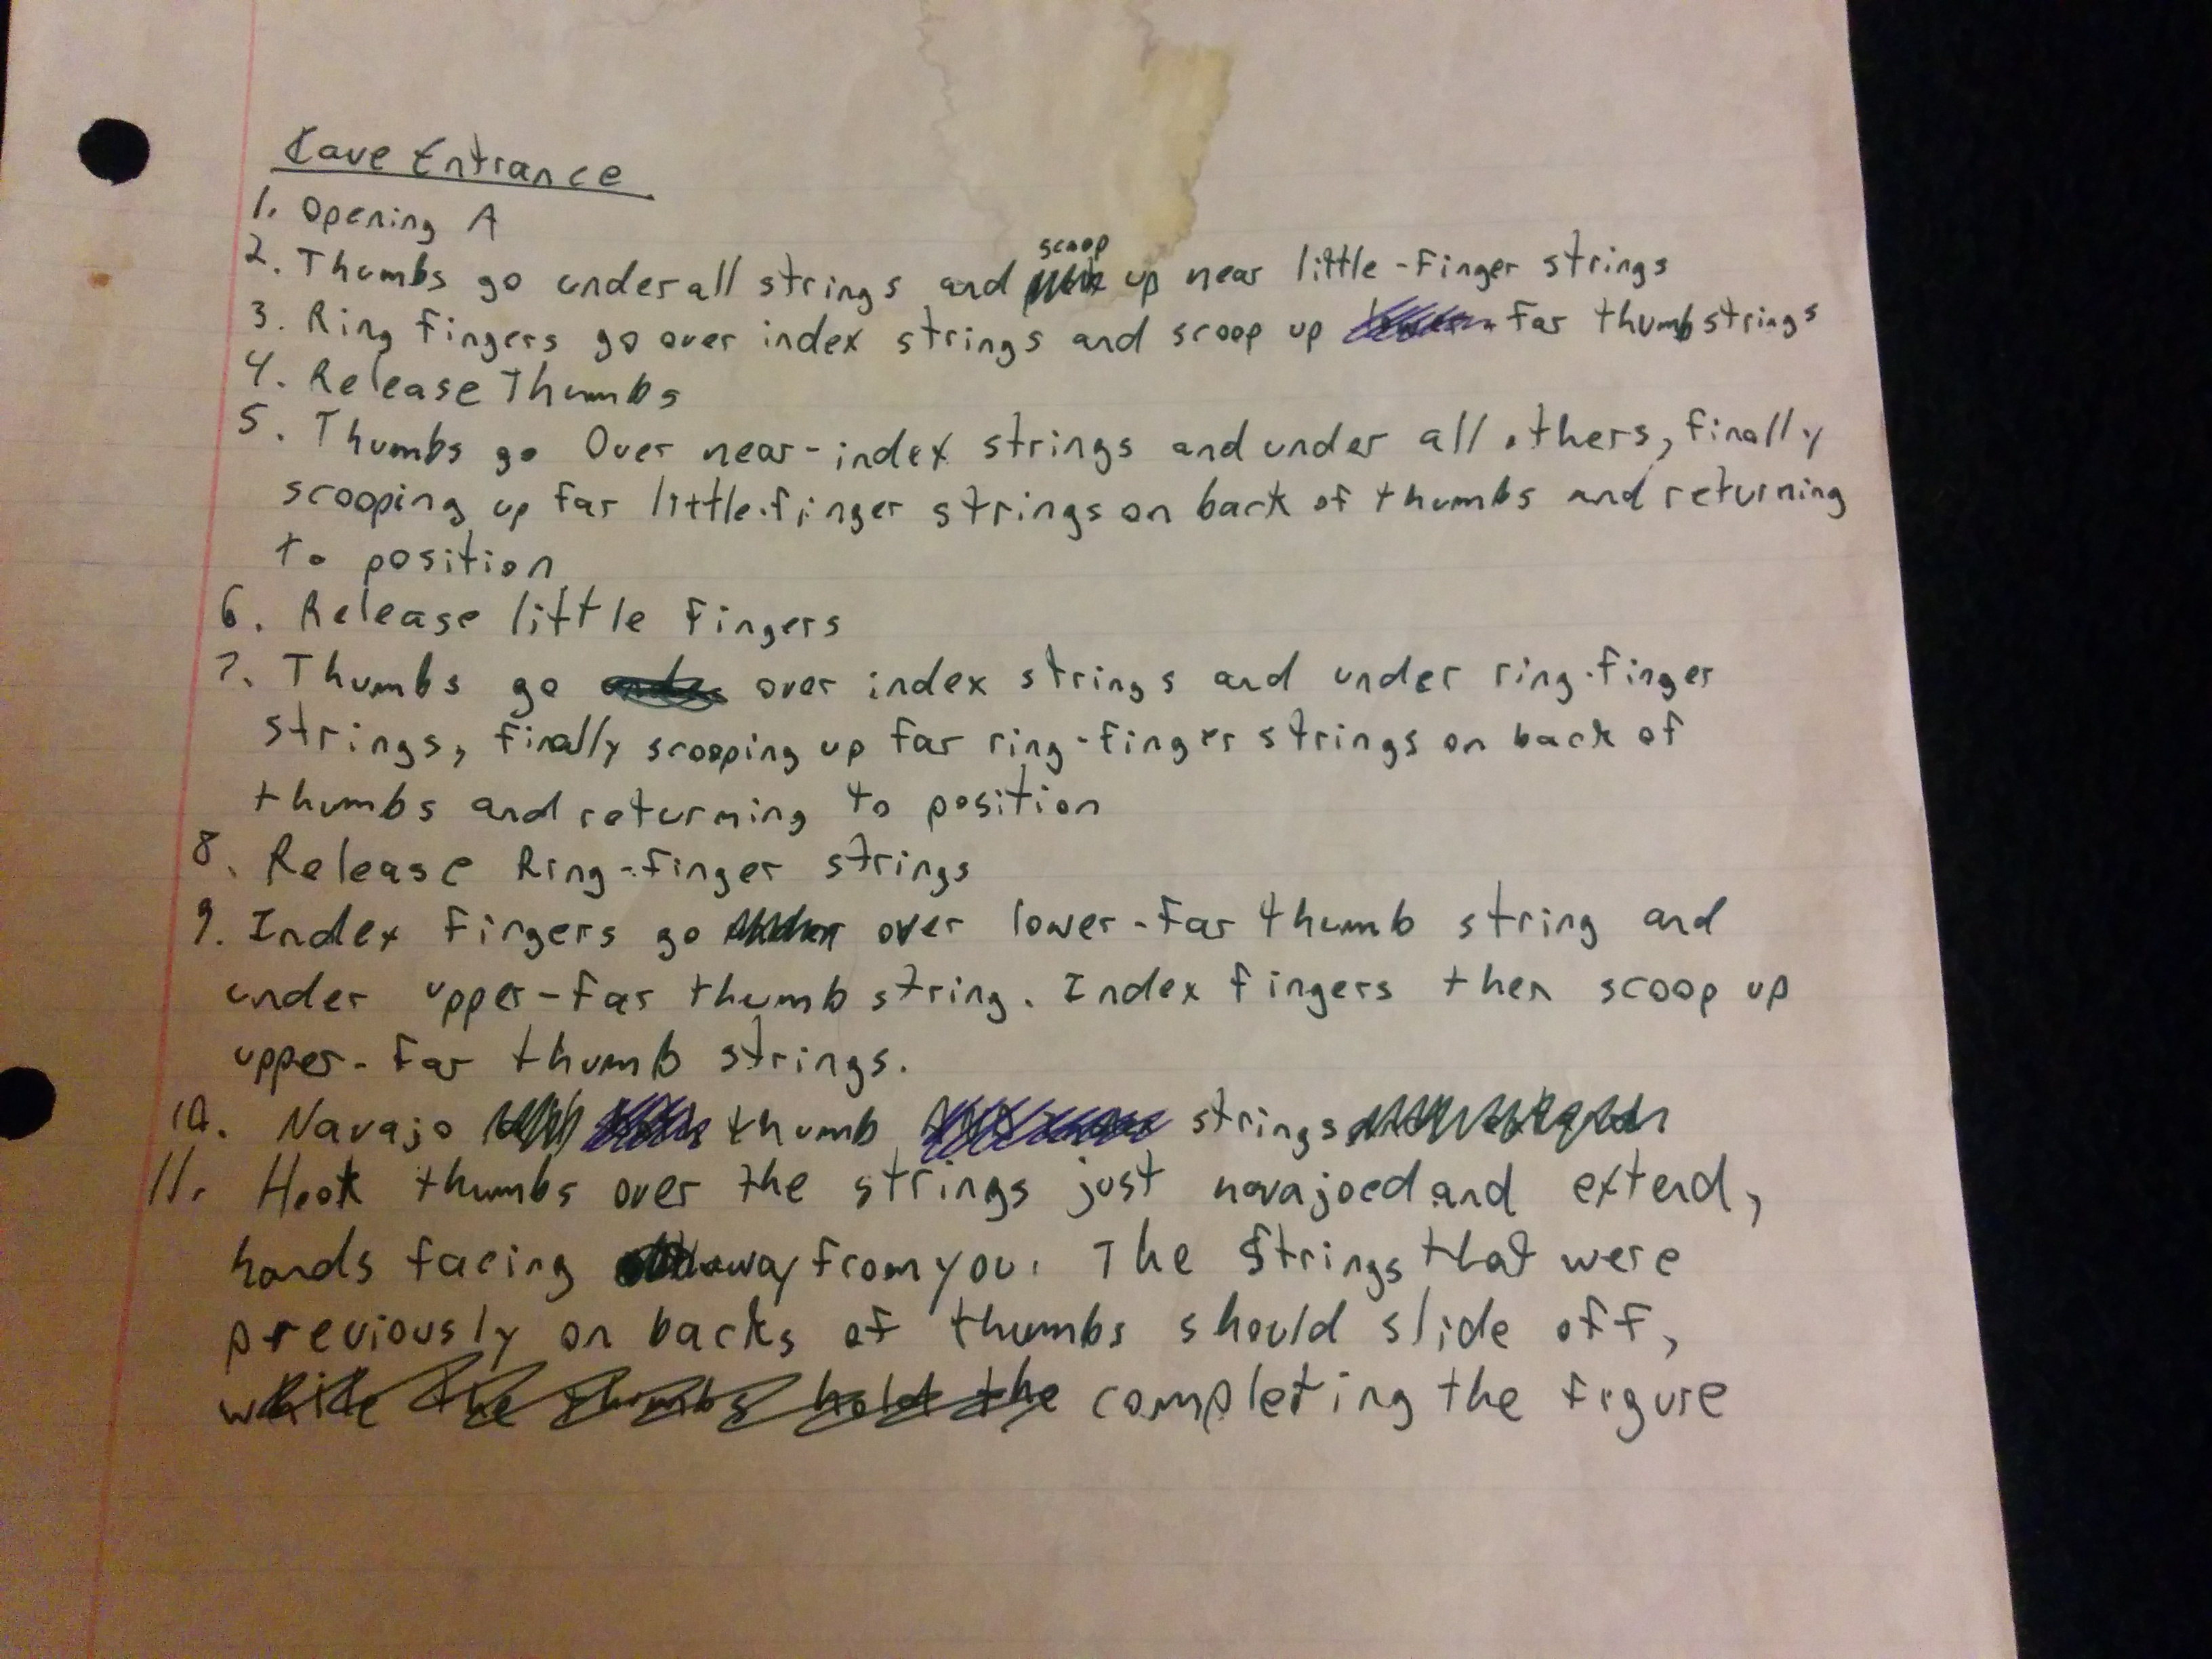 Cave Entrance
1. Opening A
2. Thumbs go under all strings and scoop up near little-finger strings
3. Ring fingers go over index strings and scoop up far thumb strings
4. Release Thumbs
5. Thumbs go Over near-index strings and under all others, finally
scooping up far little-finger strings on back of thumbs and returning
to position
6. Release little fingers
7. Thumbs go over index strings and under ring-finger
strings, finally scooping up far ring-finger strings on back of
thumbs and returning to position
8. Release Ring-finger strings
9. Index fingers go over lower-far thumb string and
under upper-far thumb string. Index fingers then scoop up
upper-far thumb strings.
10. Navajo thumb strings
11. Hook thumbs over the strings just navajoed and extend,
hands facing away from you. The Strings that were
previously on backs of thumbs should slide off,
while the thumbs hold the completing the figure